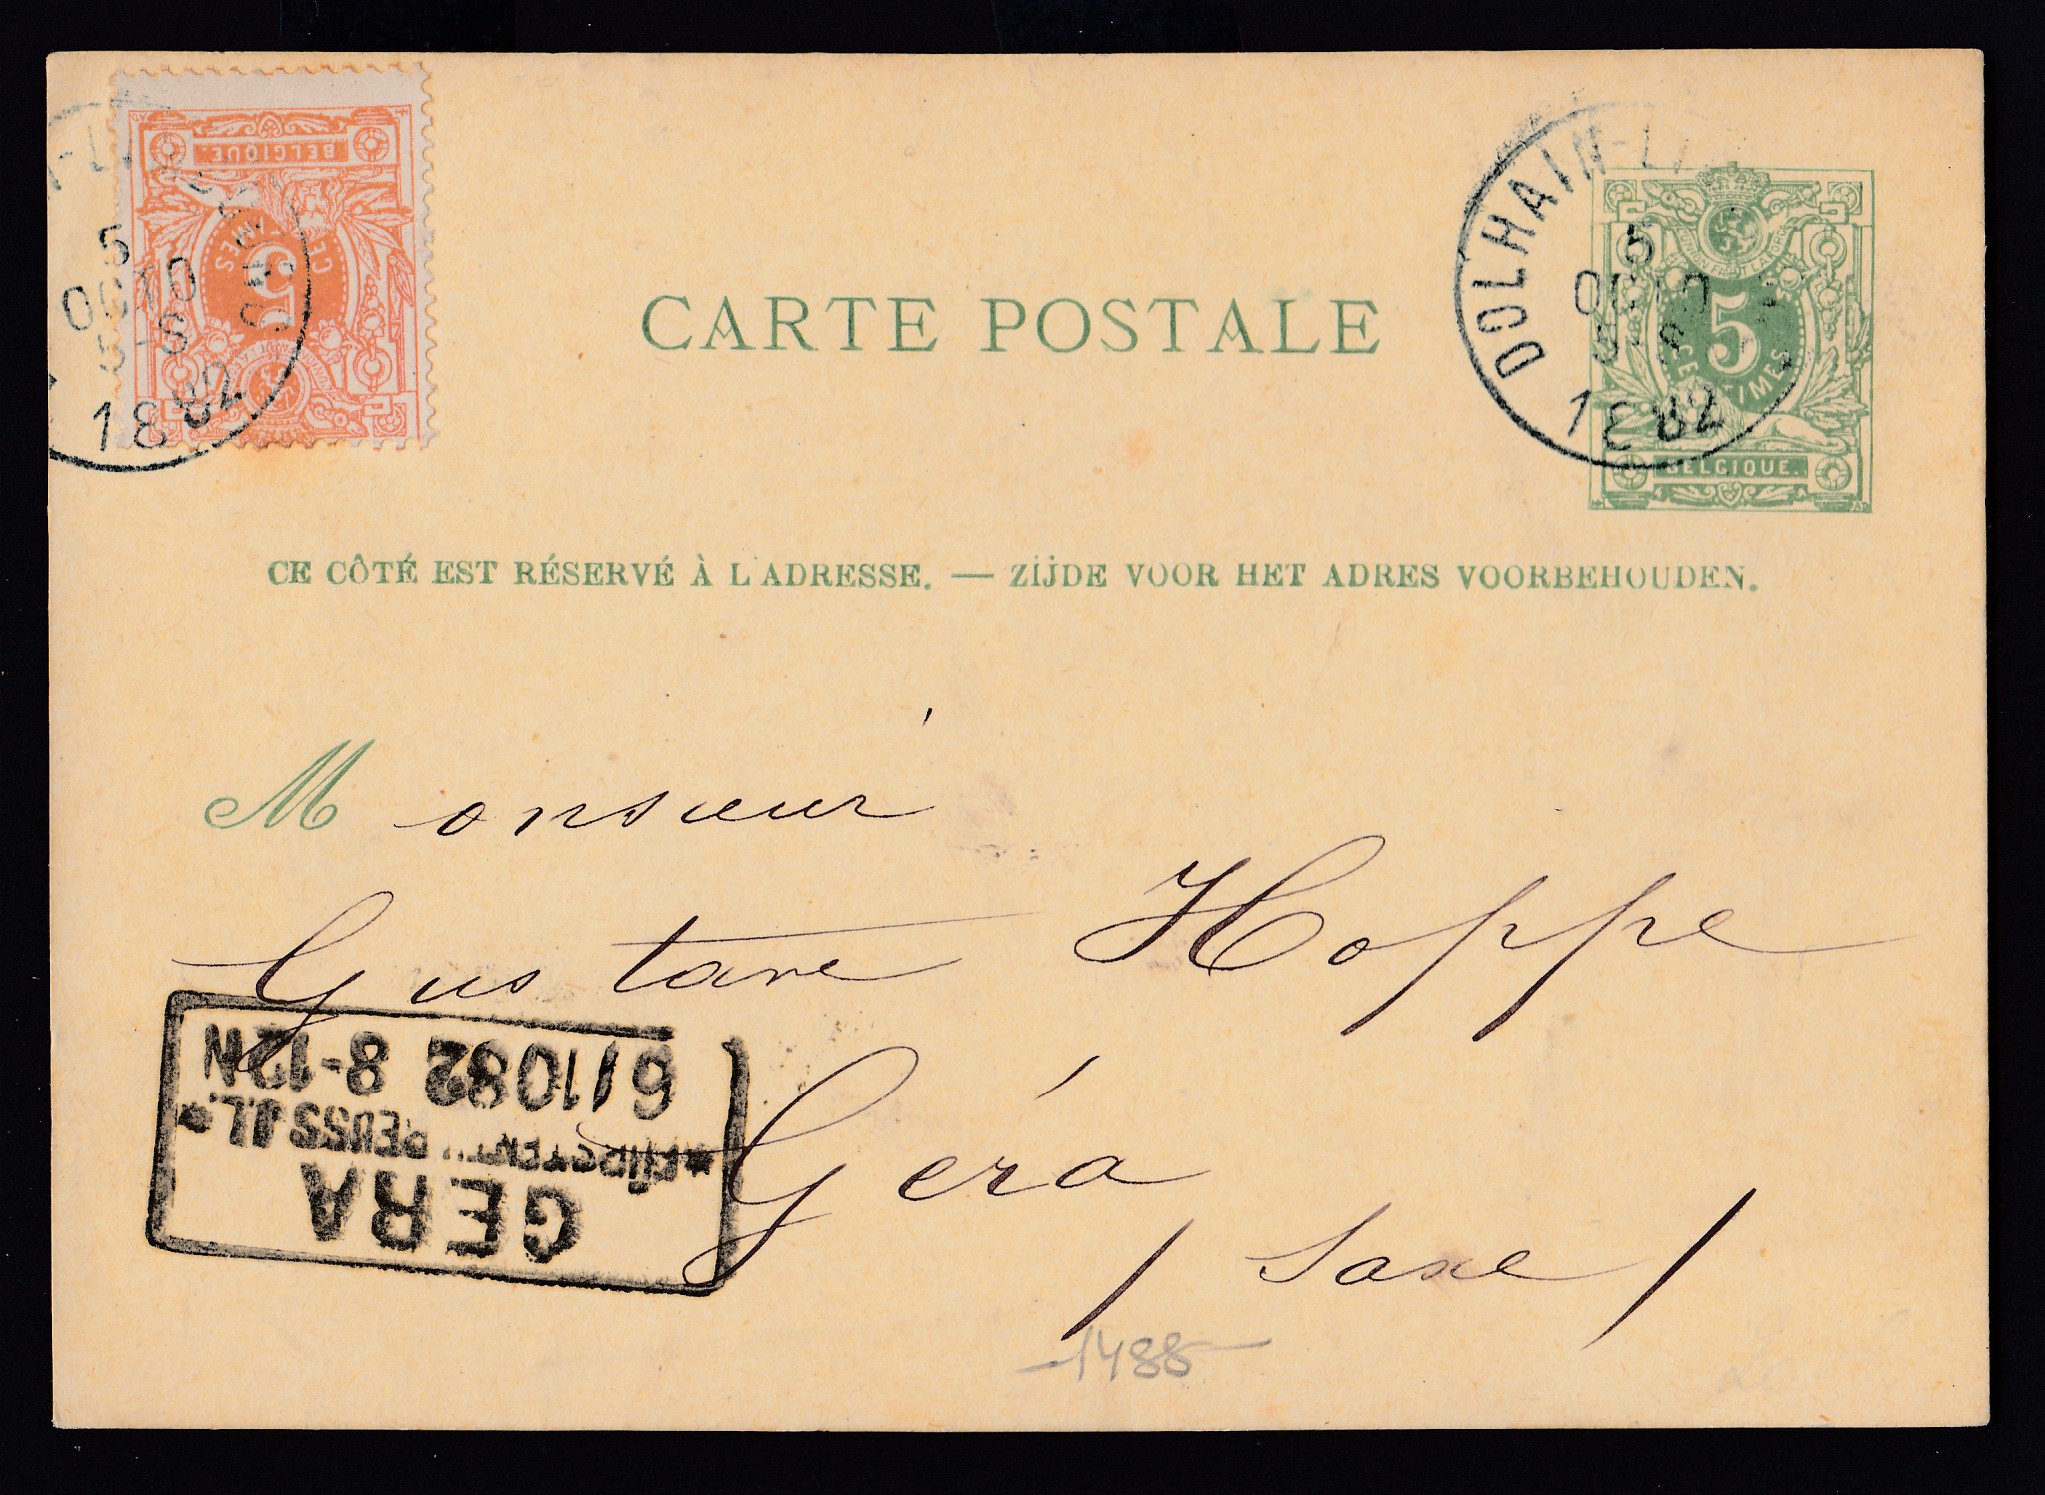 BELGIQUE.
5
5
OCTO
5-6
1882
CARTE POSTALE
DOLHAIN-LI
5
OCTO
5-6
1882
UNION FAIT LA FORCE
5
CENTIMES
BELGIQUE.
CE CÔTÉ EST RÉSERVÉ À L'ADRESSE. — ZIJDE VOOR HET ADRES VOORBEHOUDEN.
Monsieur
Gustave Hoppe
Gera
/ Saxe /
GERA
*FÜRSTENTH. REUSS J.L.*
6/1082 8-12N
-1488-